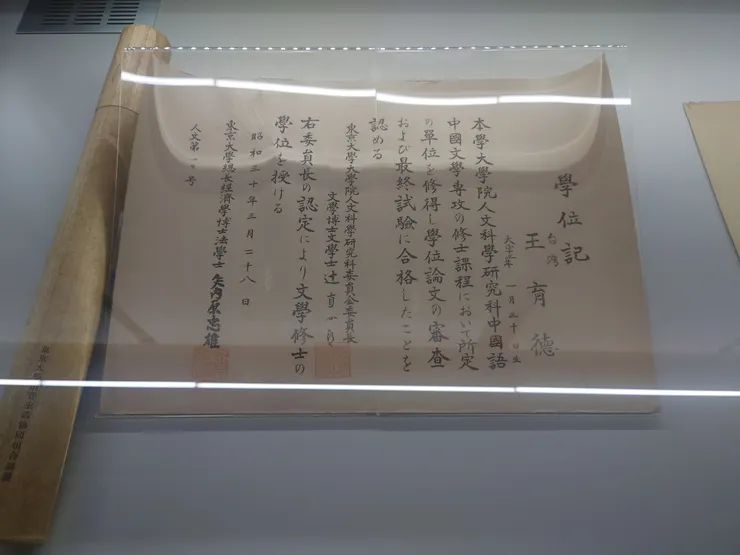 學位記
台灣
王育德
大正十三年一月三十日生
本學大學院人文科學研究科中國語
中國文學専攻の修士課程において所定
の單位を修得し學位論文の審査
および最終試驗に合格したことを
認める
東京大學大學院人文科學研究科委員会委員長
文學博士文學士辻直四郎
右委員長の認定により文學修士の
學位を授ける
昭和三十年三月二十八日
東京大學總長經濟學博士法學士矢内原忠雄
人文第号